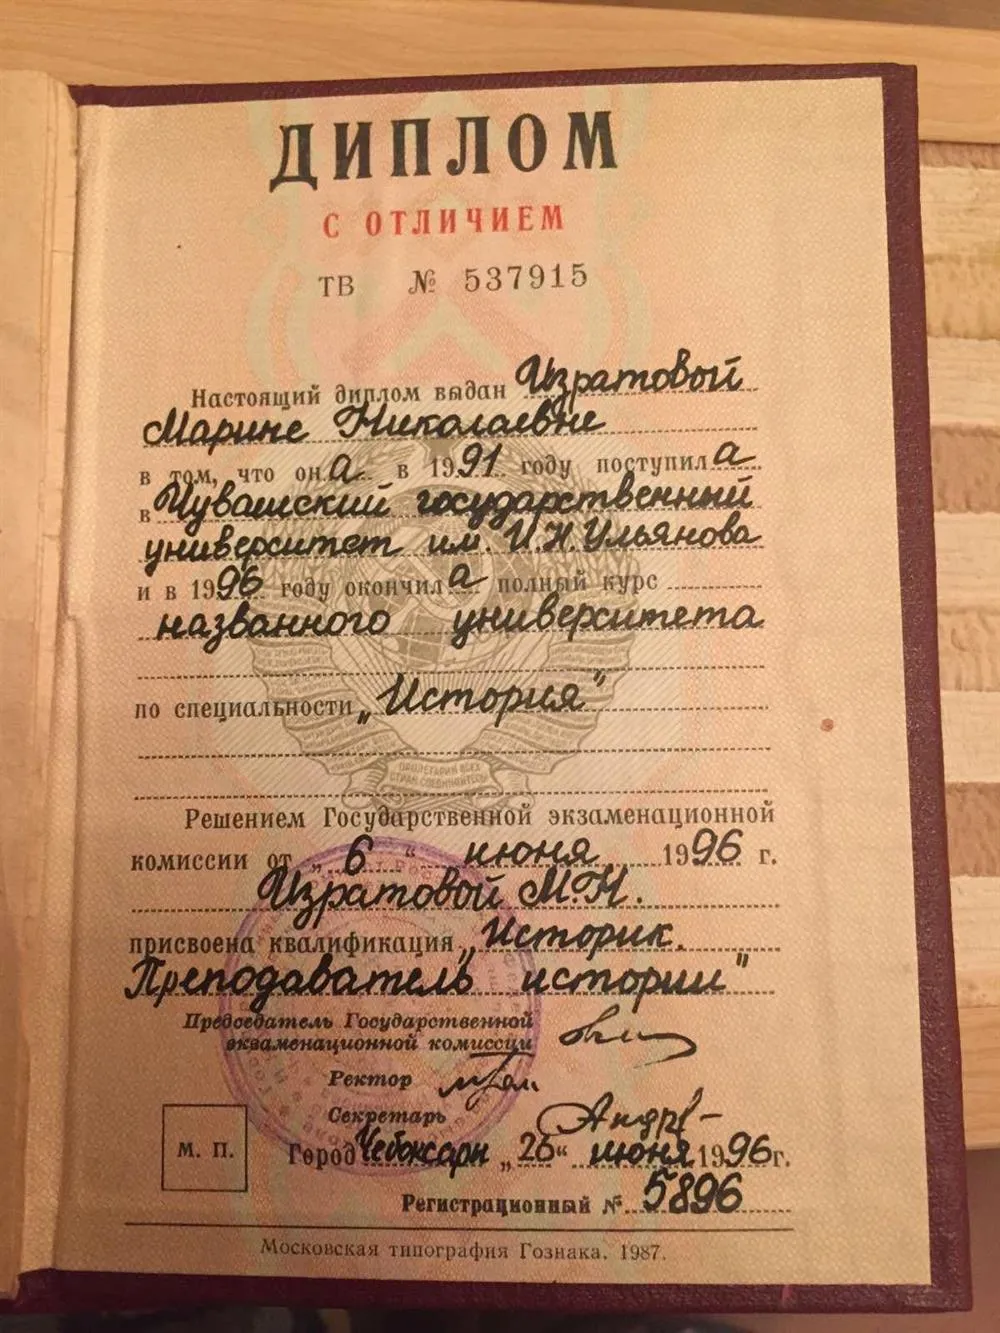 ДИПЛОМ
С ОТЛИЧИЕМ
ТВ № 537915
Настоящий диплом выдан Изратовой
Марине Николаевне
в том, что она в 1991 году поступила
в Чувашский государственный
университет им. И.Н.Ульянова
и в 1996 году окончила полный курс
названного университета
по специальности „История"
ПРОЛЕТАРИИ ВСЕХ
СТРАН, СОЕДИНЯЙТЕСЬ
Решением Государственной экзаменационной
комиссии от „6" июня 1996 г.
Изратовой М.Н.
присвоена квалификация „Историк.
Преподаватель истории"
Председатель Государственной
экзаменационной комиссии
Ректор
Секретарь
М. П.
Город Чебоксары „26" июня 1996 г.
Регистрационный № 5896
Московская типография Гознака. 1987.